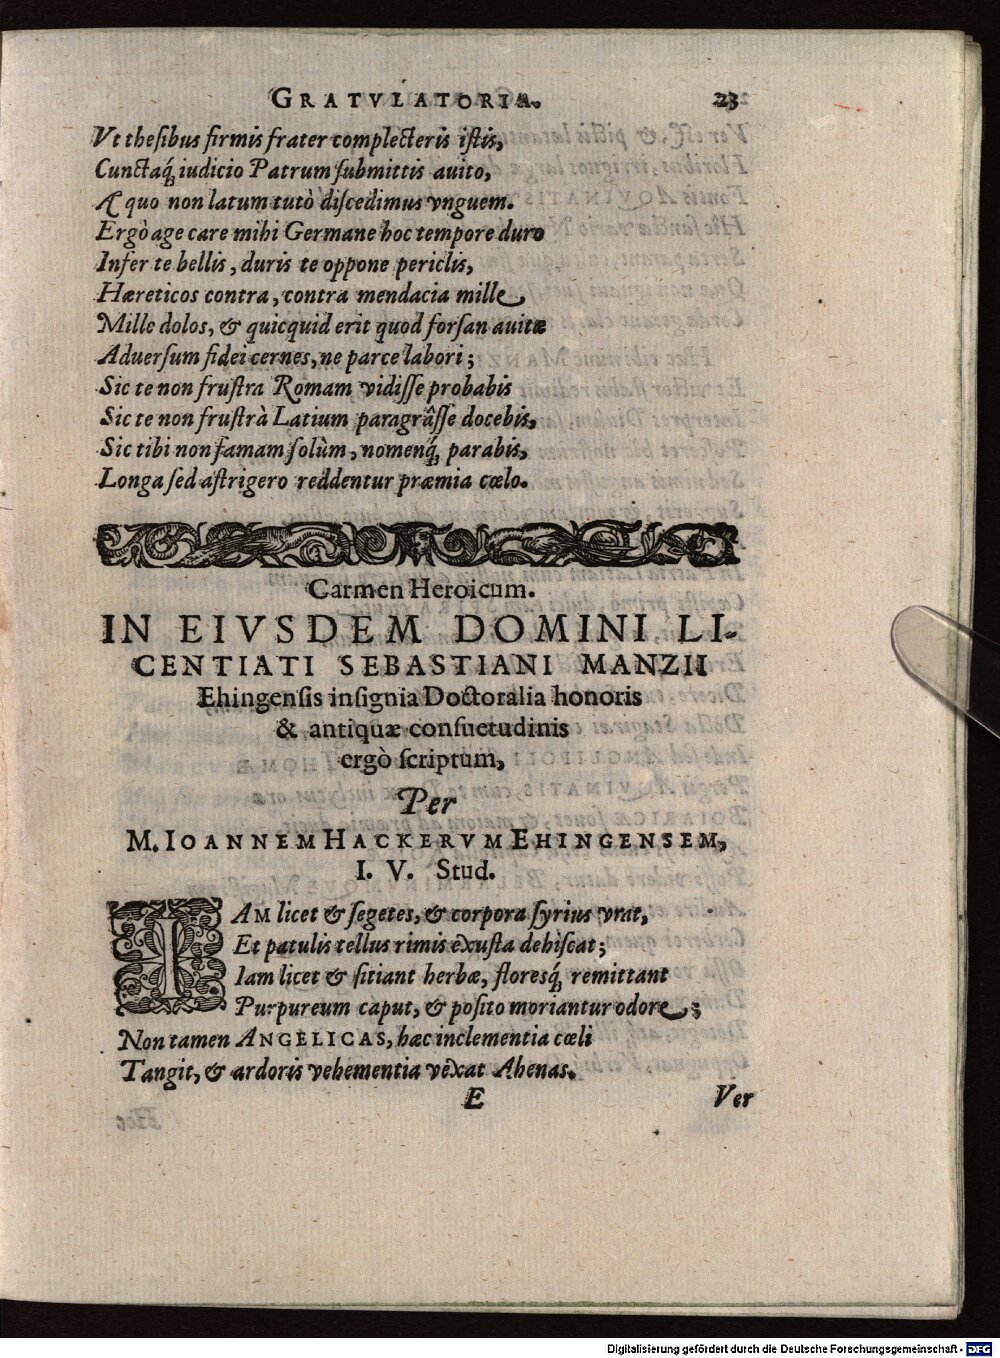 GRATVLATORIA. 23
Vt thesibus firmis frater complecteris istis,
Cunctaq́; iudicio Patrum submittis auito,
A quo non latum tutò discedimus vnguem.
Ergò age care mihi Germane hoc tempore duro
Infer te bellis, duris te oppone periclis,
Hæreticos contra, contra mendacia mille
Mille dolos, & quicquid erit quod forsan auitæ
Aduersum fidei cernes, ne parce labori;
Sic te non frustra Romam vidisse probabis
Sic te non frustrà Latium paragrâsse docebis,
Sic tibi non famam solùm, nomenq́; parabis,
Longa sed astrigero reddentur præmia cœlo.
Carmen Heroicum.
IN EIVSDEM DOMINI LI-
CENTIATI SEBASTIANI MANZII
Ehingensis insignia Doctoralia honoris
& antiquæ consuetudinis
ergò scriptum,
Per
M. IOANNEM HACKERVM EHINGENSEM,
I. V. Stud.
IAM licet & segetes, & corpora syrius vrat,
Et patulis tellus rimis exusta dehiscat;
Iam licet & sitiant herbæ, floresq́; remittant
Purpureum caput, & posito moriantur odore;
Non tamen ANGELICAS, hæc inclementia cœli
Tangit, & ardoris vehementia vexat Ahenas.
E Ver
Digitalisierung gefördert durch die Deutsche Forschungsgemeinschaft - DFG